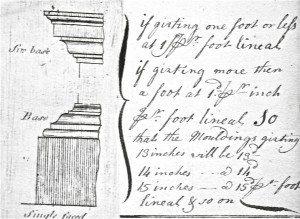 if girting one foot or less
at 1/ pr. foot lineal
Sur base
if girting more then
a foot at 1d. pr. inch
Base
pr. foot lineal So
that the Mouldings girting
13 inches will be 13d
14 inches - a 14
15 inches - a 15d pr. foot
lineal & so on
Single faced